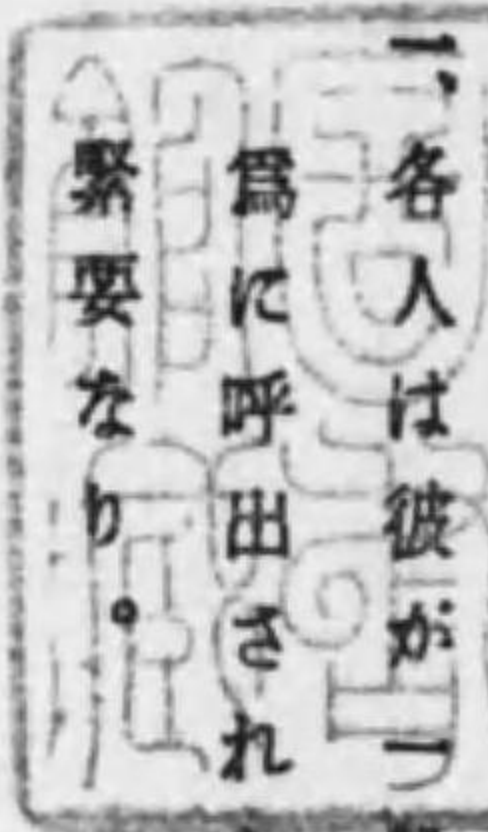 一、各人は彼が一
爲に呼出され
緊要なり。